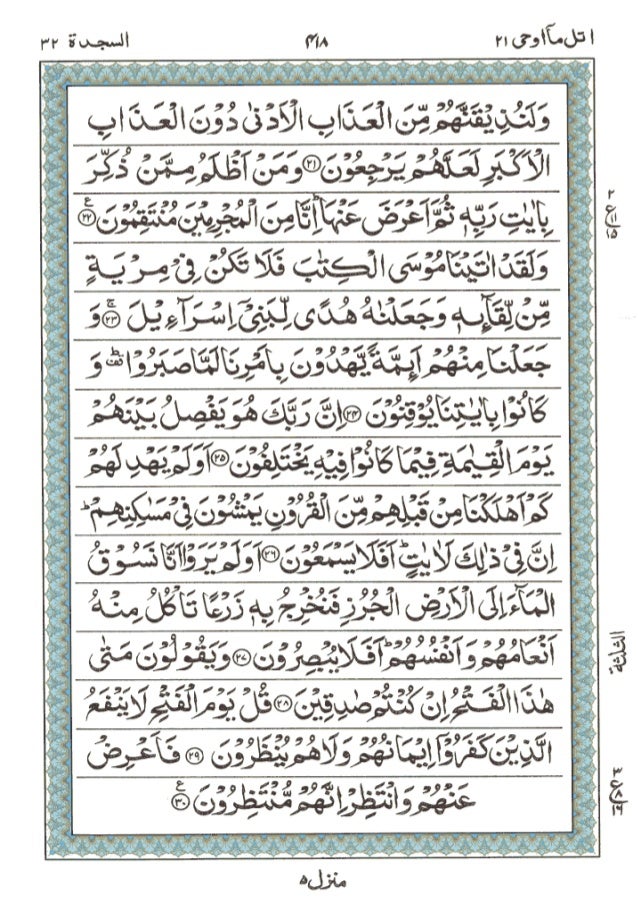 اتل مآ اوحی ۲۱ ۴۱۸ السجدة ۳۲
وَلَنُذِيْقَنَّهُمْ مِّنَ الْعَذَابِ الْاَدْنٰى دُوْنَ الْعَذَابِ
الْاَكْبَرِ لَعَلَّهُمْ يَرْجِعُوْنَ ۝۲۱ وَمَنْ اَظْلَمُ مِمَّنْ ذُكِّرَ
بِاٰيٰتِ رَبِّهٖ ثُمَّ اَعْرَضَ عَنْهَا ؕ اِنَّا مِنَ الْمُجْرِمِيْنَ مُنْتَقِمُوْنَ ۝۲۲ ع
وَلَقَدْ اٰتَيْنَا مُوْسَى الْكِتٰبَ فَلَا تَكُنْ فِيْ مِرْيَةٍ
مِّنْ لِّقَآئِهٖ وَجَعَلْنٰهُ هُدًى لِّبَنِيْٓ اِسْرَآءِيْلَ ۝۲۳ ج وَ
جَعَلْنَا مِنْهُمْ اَئِمَّةً يَّهْدُوْنَ بِاَمْرِنَا لَمَّا صَبَرُوْا ۫ؕ وَ
كَانُوْا بِاٰيٰتِنَا يُوْقِنُوْنَ ۝۲۴ اِنَّ رَبَّكَ هُوَ يَفْصِلُ بَيْنَهُمْ
يَوْمَ الْقِيٰمَةِ فِيْمَا كَانُوْا فِيْهِ يَخْتَلِفُوْنَ ۝۲۵ اَوَلَمْ يَهْدِ لَهُمْ
كَمْ اَهْلَكْنَا مِنْ قَبْلِهِمْ مِّنَ الْقُرُوْنِ يَمْشُوْنَ فِيْ مَسٰكِنِهِمْ ؕ
اِنَّ فِيْ ذٰلِكَ لَاٰيٰتٍ ؕ اَفَلَا يَسْمَعُوْنَ ۝۲۶ اَوَلَمْ يَرَوْا اَنَّا نَسُوْقُ
الْمَآءَ اِلَى الْاَرْضِ الْجُرُزِ فَنُخْرِجُ بِهٖ زَرْعًا تَاْكُلُ مِنْهُ
اَنْعَامُهُمْ وَاَنْفُسُهُمْ ؕ اَفَلَا يُبْصِرُوْنَ ۝۲۷ وَيَقُوْلُوْنَ مَتٰى
هٰذَا الْفَتْحُ اِنْ كُنْتُمْ صٰدِقِيْنَ ۝۲۸ قُلْ يَوْمَ الْفَتْحِ لَا يَنْفَعُ
الَّذِيْنَ كَفَرُوْٓا اِيْمَانُهُمْ وَلَا هُمْ يُنْظَرُوْنَ ۝۲۹ فَاَعْرِضْ
عَنْهُمْ وَانْتَظِرْ اِنَّهُمْ مُّنْتَظِرُوْنَ ۝۳۰ ع
الثلثة
منزل ۵